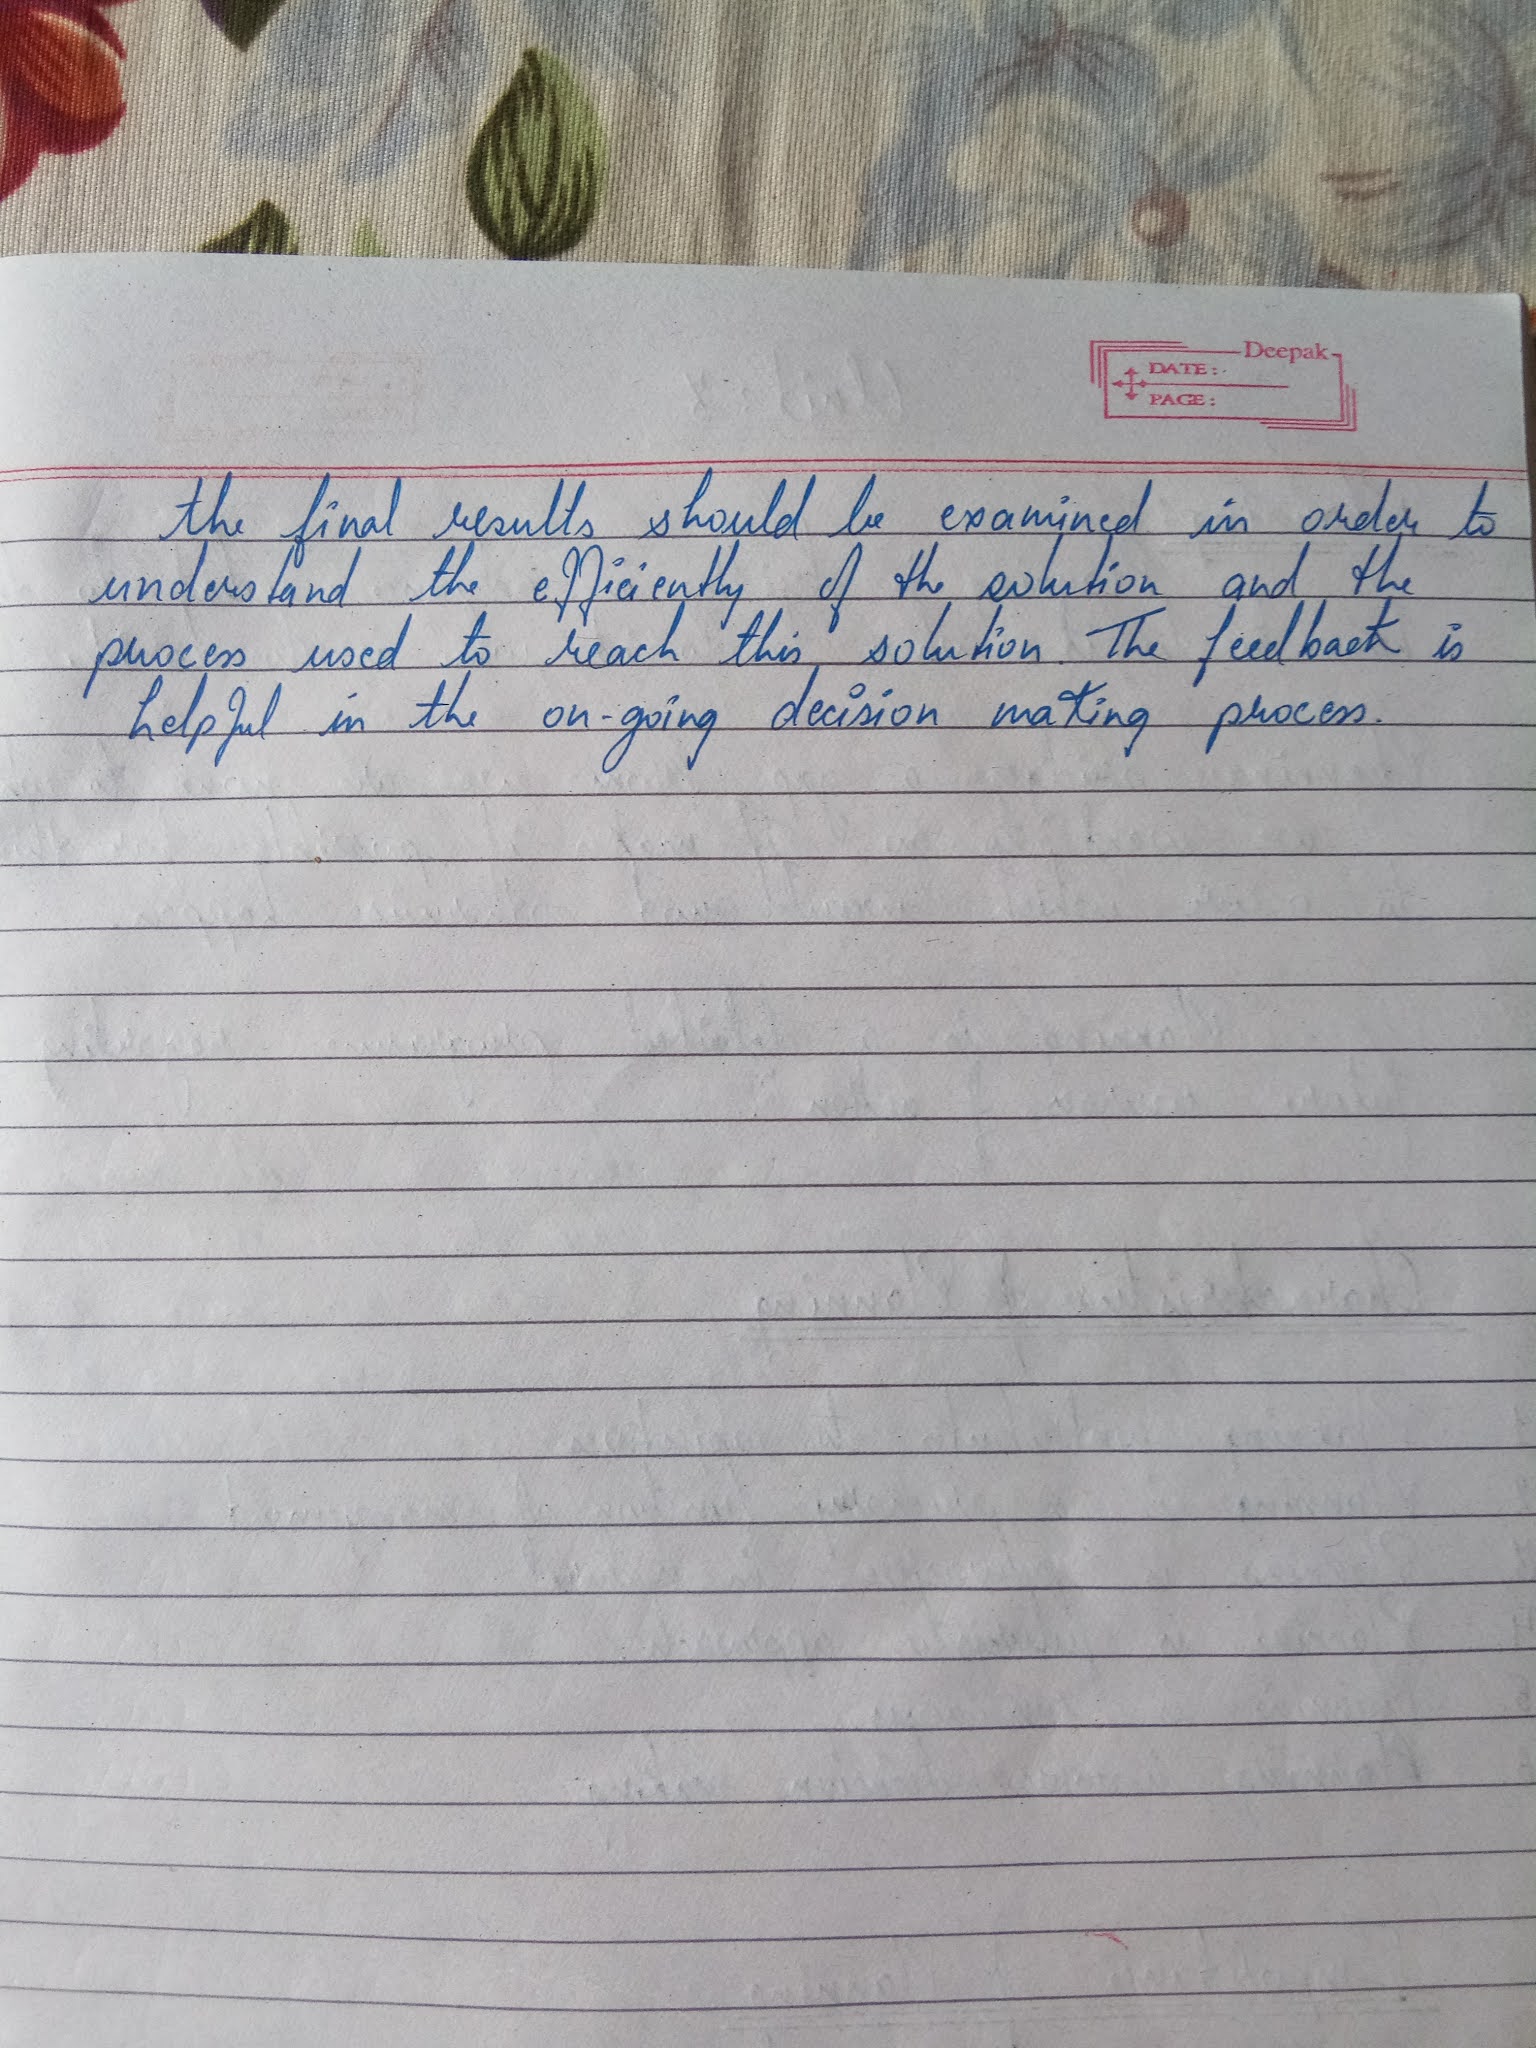 Deepak
DATE:
PAGE:
the final results should be examined in order to
understand the efficiently of the solution and the
process used to reach this solution. The feedback is
helpful in the on-going decision making process.